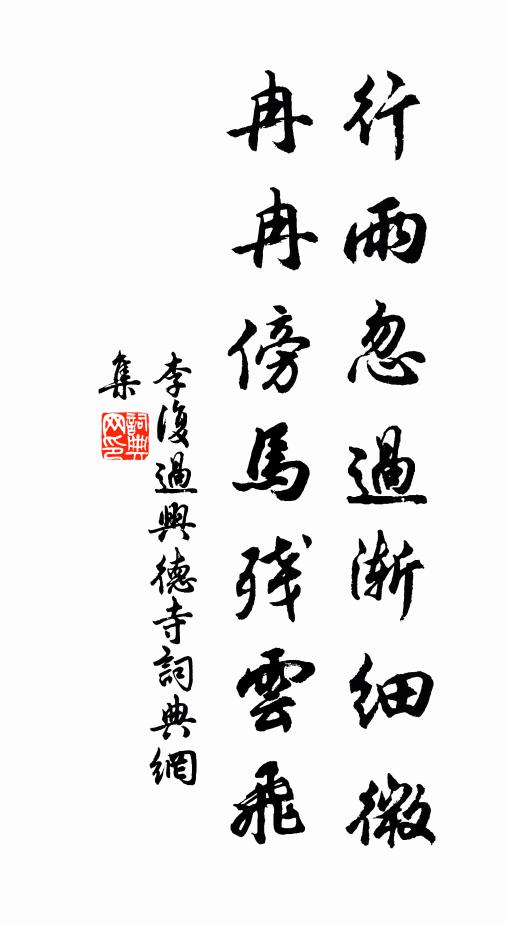 行雨忽過漸細微
冉冉傍馬殘雲飛
李復過興德寺詞典網
集
詞典
网印